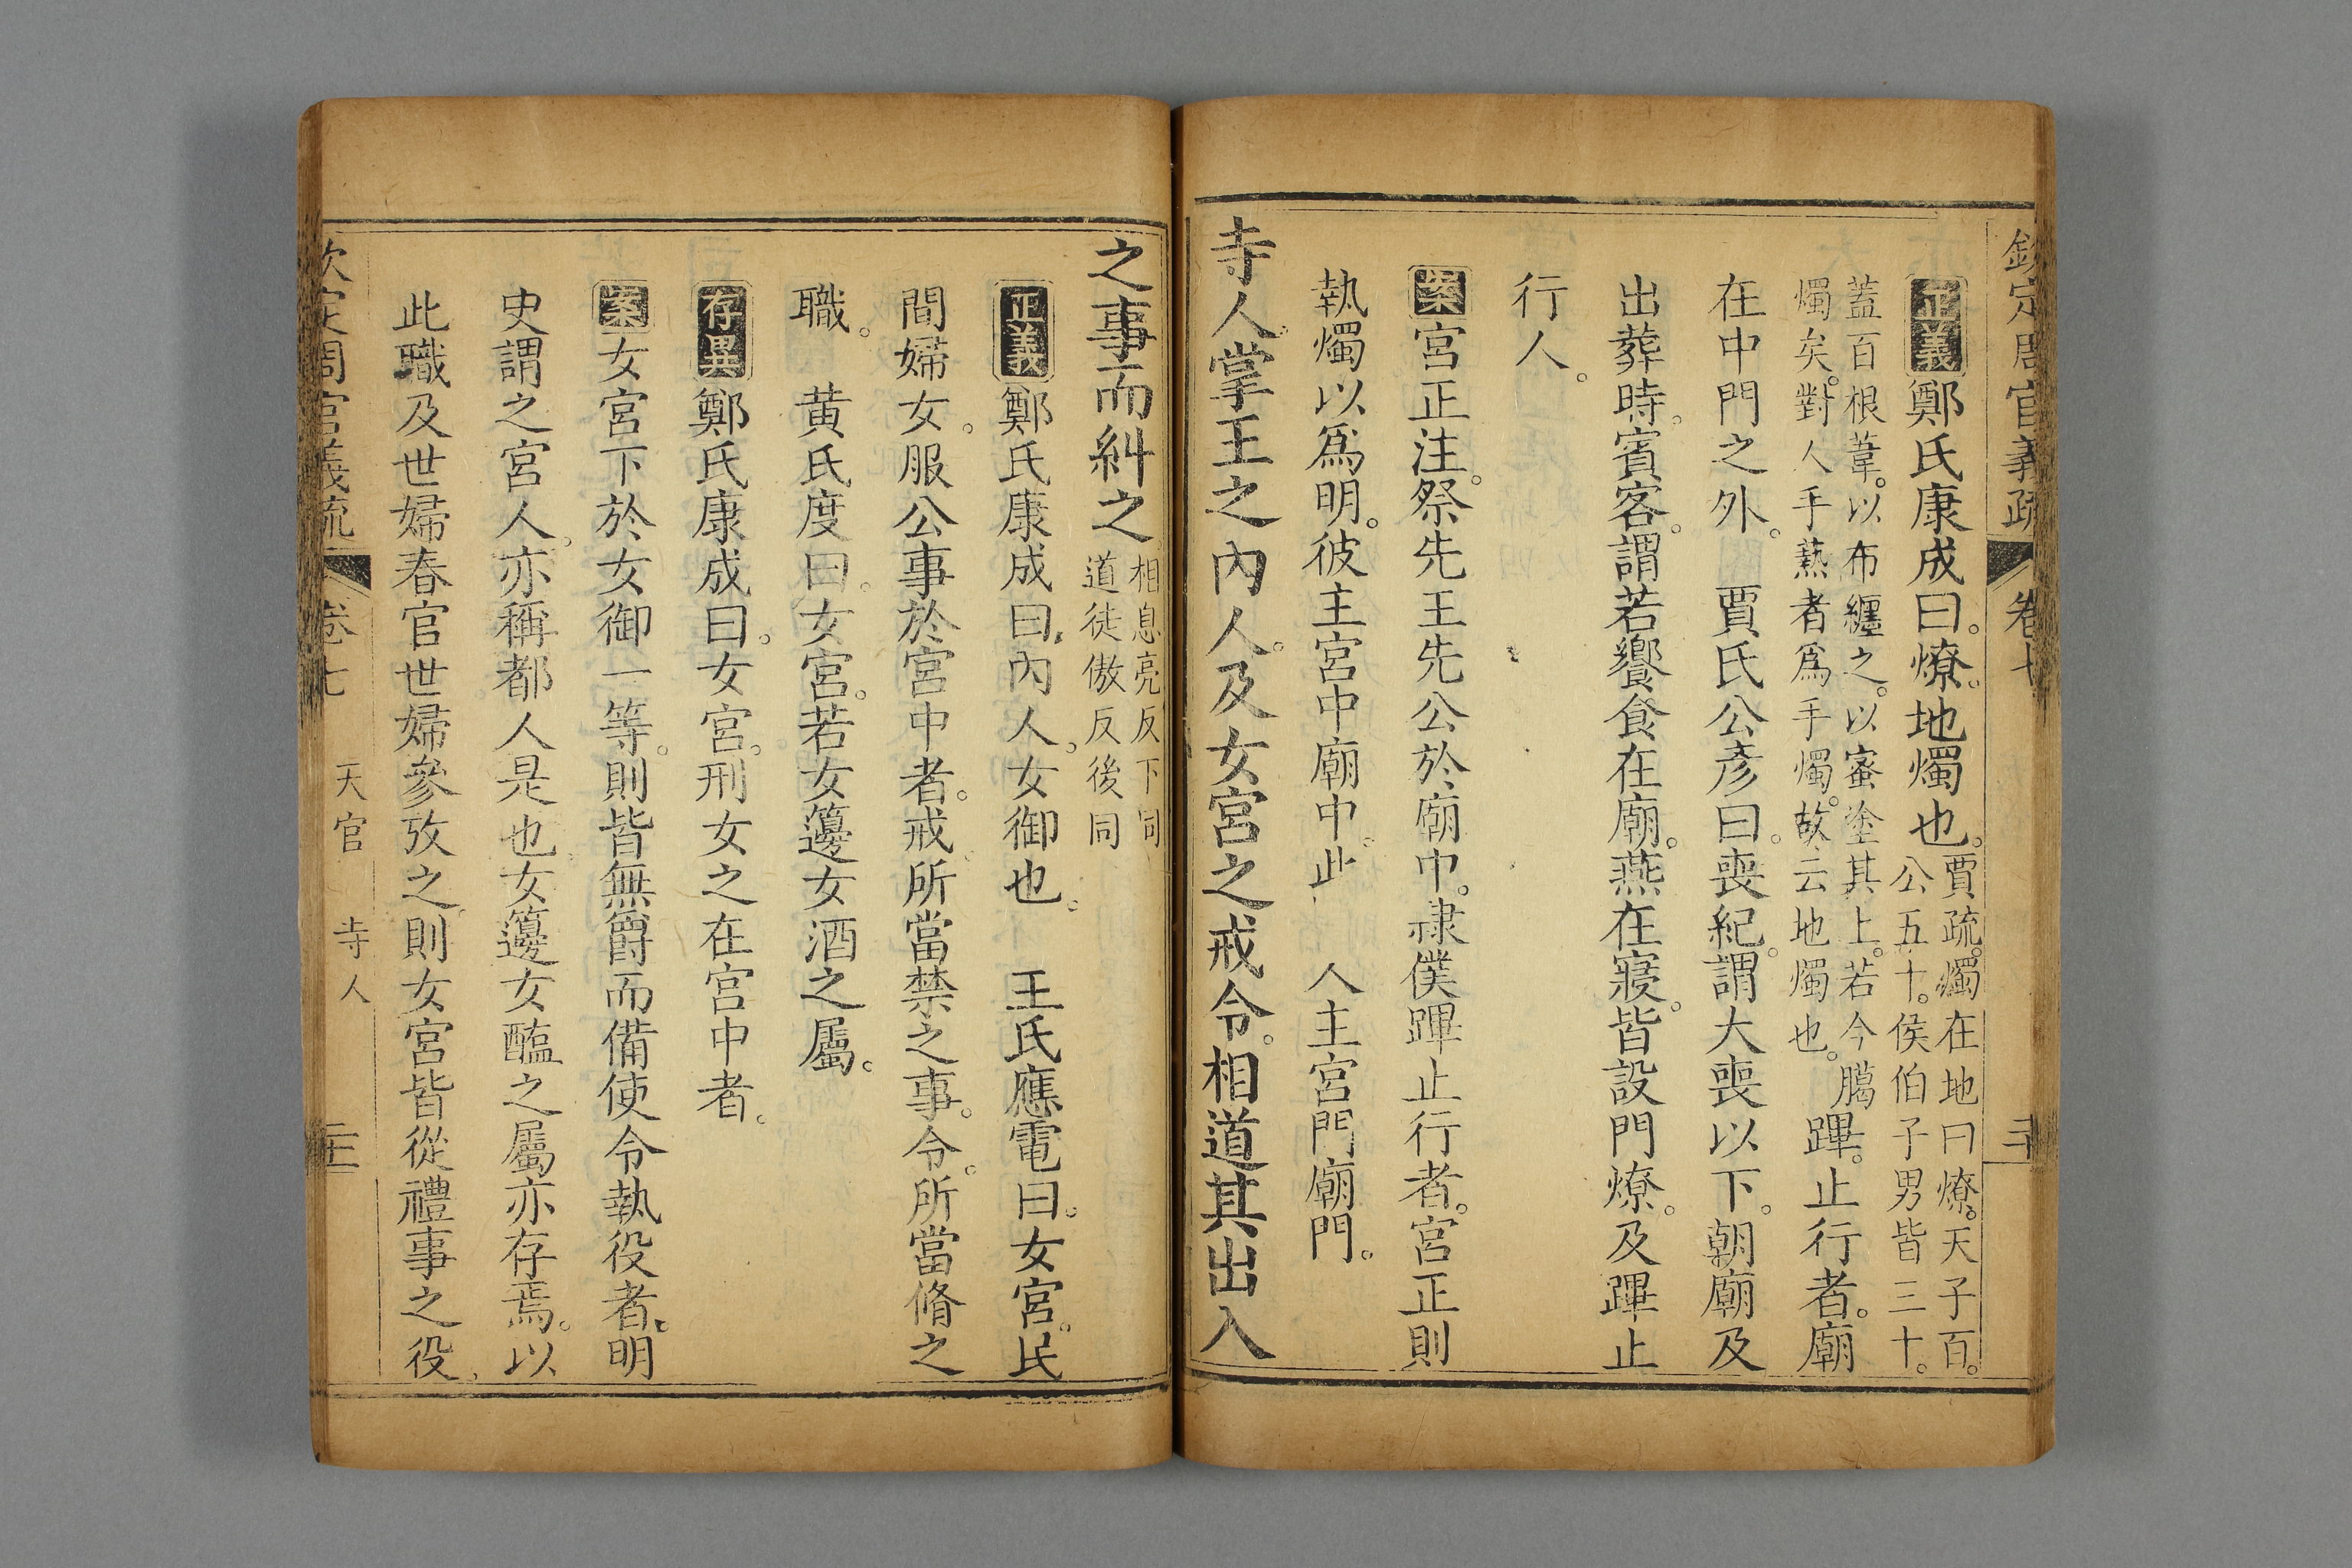 欽定周官義疏 卷七 二十
正義鄭氏康成曰。燎。地燭也。賈疏。燭在地曰燎。天子百。公五十。侯伯子男皆三十。
蓋百根葦。以布纏之。以蜜塗其上。若今臈燭矣。對人手爇者爲手燭。故云地燭也。蹕。止行者。廟
在中門之外。 賈氏公彥曰。喪紀。謂大喪以下。朝廟及
出葬時。賓客。謂若饗食在廟。燕在寢。皆設門燎。及蹕止
行人。
案宮正注。祭先王先公於廟中。隷僕蹕止行者。宮正則
執燭以爲明。彼主宮中廟中。此 人主宮門廟門。
寺人。掌王之內人。及女宮之戒令。相道其出入
之事而糾之相息亮反下同道徒傲反後同
正義鄭氏康成曰。內人。女御也。 王氏應電曰。女宮。民
間婦女。服公事於宮中者。戒。所當禁之事。令。所當脩之
職。 黃氏度曰。女宮。若女籩女酒之屬。
存異鄭氏康成曰。女宮。刑女之在宮中者。
案女宮下於女御一等。則皆無爵而備使令執役者。明
史謂之宮人。亦稱都人是也女籩女醢之屬亦存焉。以
此職及世婦春官世婦參攷之。則女宮皆從禮事之役
欽定周官義疏 卷七 天官 寺人